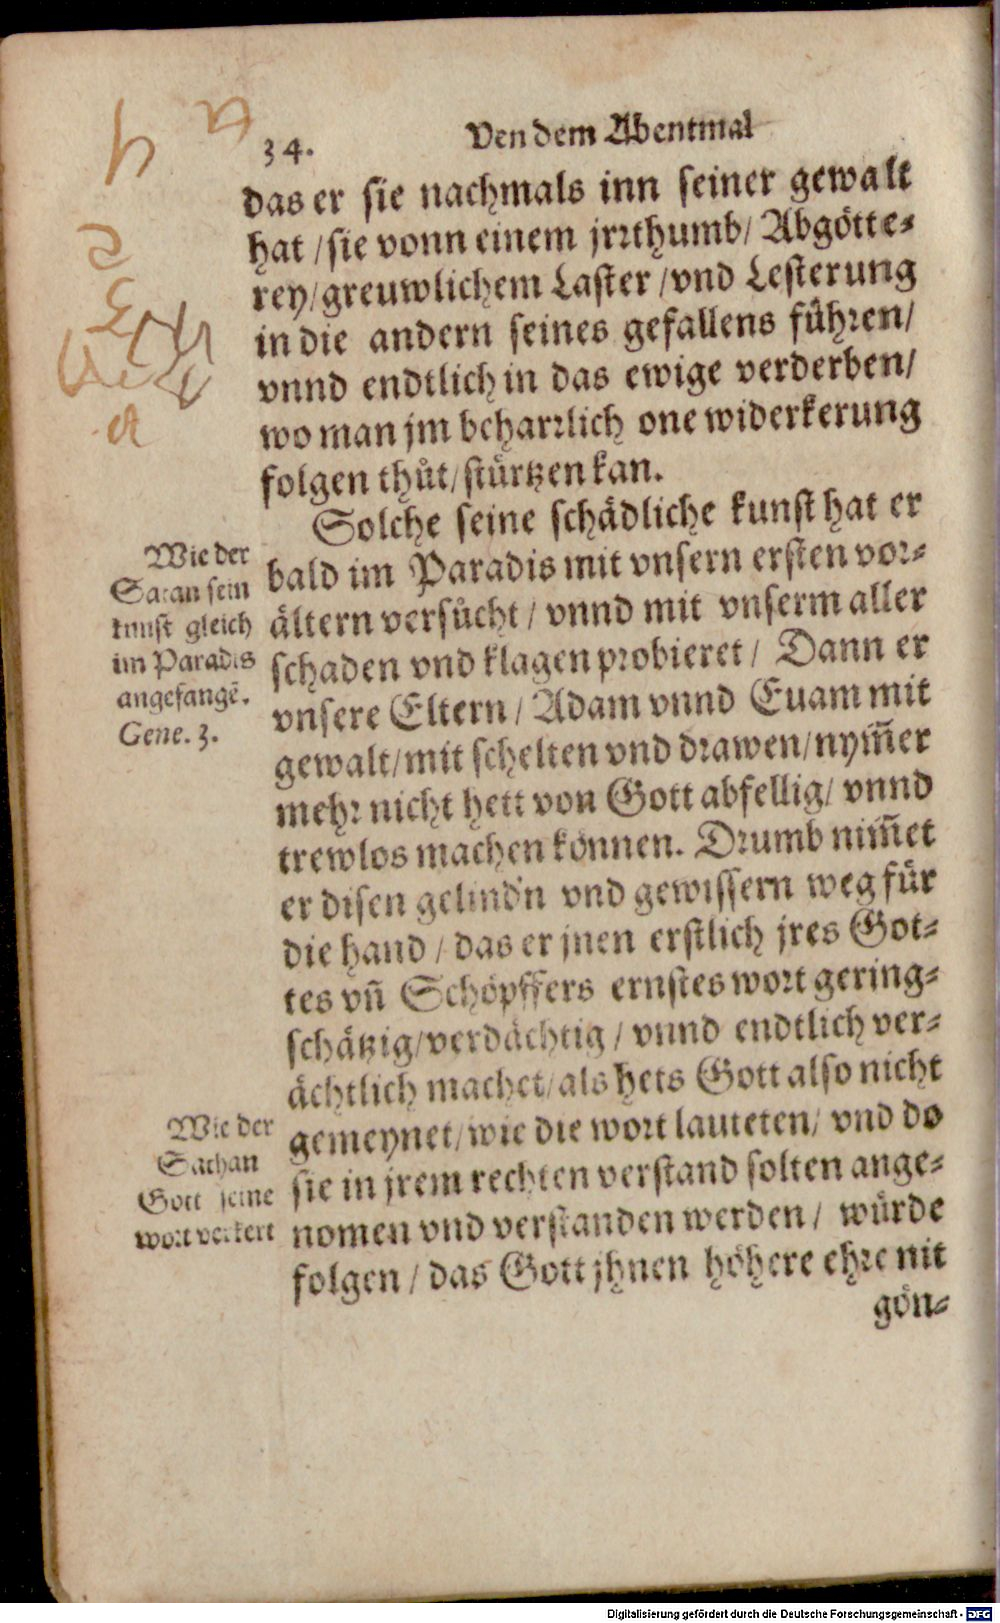 34.
Von dem Abentmal
das er sie nachmals inn seiner gewalt
hat / sie vonn einem jrrthumb / Abgötte-
rey / greuwlichem Laster / vnd Lesterung
in die andern seines gefallens führen /
vnnd endtlich in das ewige verderben /
wo man jm beharrlich one widerkerung
folgen thůt / stürtzen kan.
Solche seine schädliche kunst hat er
bald im Paradis mit vnsern ersten vor-
ältern versůcht / vnnd mit vnserm aller
schaden vnd klagen probieret / Dann er
vnsere Eltern / Adam vnnd Euam mit
gewalt / mit schelten vnd drawen / nym̃er
mehr nicht hett von Gott abfellig / vnnd
trewlos machen können. Drumb nim̃et
er disen gelindn vnd gewissern weg für
die hand / das er jnen erstlich jres Got-
tes vñ Schöpffers ernstes wort gering-
schätzig / verdächtig / vnnd endtlich ver-
ächtlich machet / als hets Gott also nicht
gemeynet / wie die wort lauteten / vnd do
sie in jrem rechten verstand solten ange-
nomen vnd verstanden werden / würde
folgen / das Gott jhnen höhere ehre nit
gön-
Wie der
Satan sein
kunst gleich
im Paradis
angefangē.
Gene. 3.
Wie der
Sathan
Gott seine
wort verkert
Digitalisierung gefördert durch die Deutsche Forschungsgemeinschaft - DFG